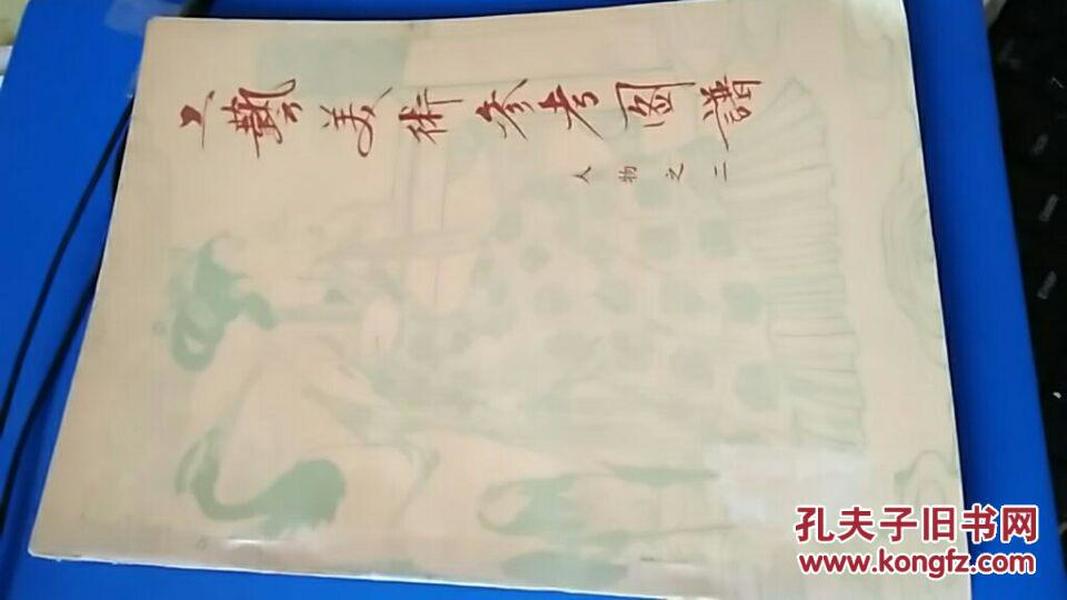 工藝美術參考图譜
人物之二
孔夫子旧书网
www.kongfz.com